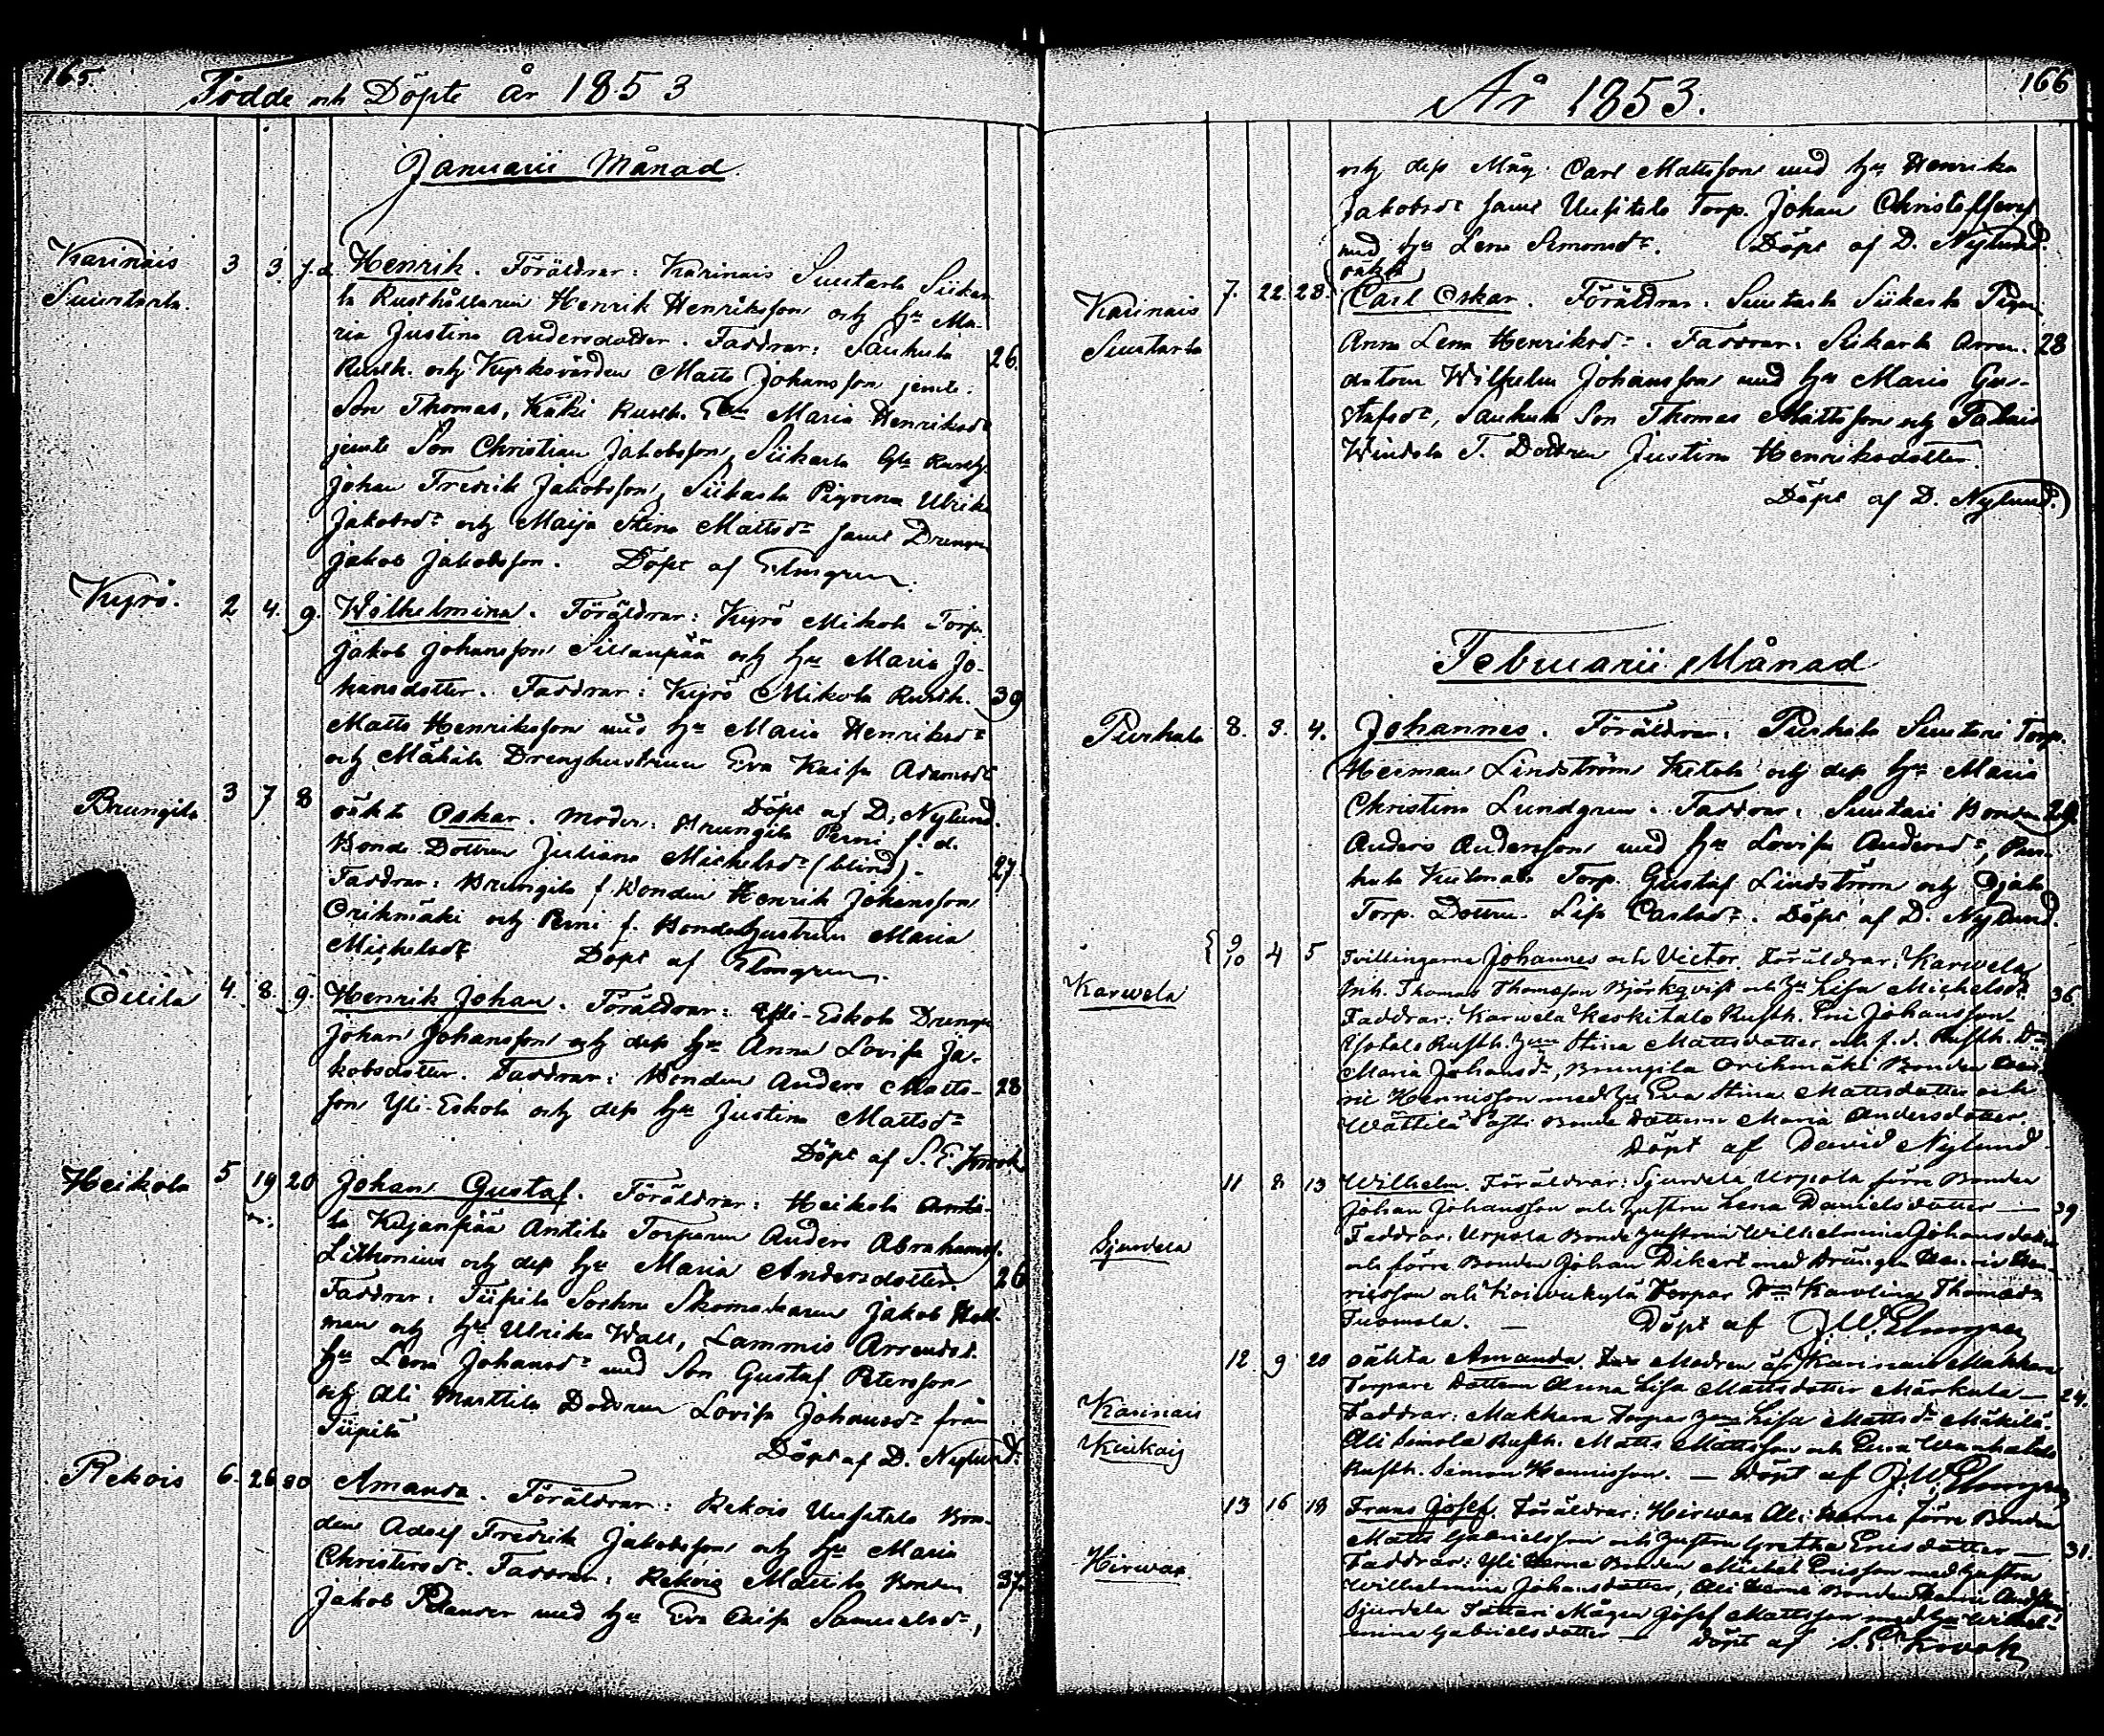 165.
Födde och Döpte år 1853
Januarii Månad.
Karinais
Suurtarla.
3 3. s. d. Henrik. Föräldrar: Karinais Suutarla Siikar-
la Rusthållaren Henrik Henriksson och hu Ma-
ria Justina Andersdotter. Faddrar: Sauhula 26.
Rusth. och Kyrkovärden Matts Johansson jemte
Son Thomas, Käki Rusth. Maria Henriksdr
jemte Son Christian Jakobsson, Siikarla Rusth.
Johan Fredrik Jakobsson, Siikarla Pigorna Ulrika
Jakobsdr och Maija Stina Mattsdr samt Drengen
Jakob Jakobsson. Döpt af Elmgren.
Kyrö. 2 4. 9. Wilhelmina. Föräldrar: Kyrö Mikola Torp.
Jakob Johansson Sillanpää och hu Maria Jo-
hansdotter. Faddrar: Kyrö Mikola Rusth. 39
Matts Henriksson med hu Maria Henriksdr
och Mäkilä Drenghustrun Eva Kaisa Adamsdr
Döpt af D. Nylund.
Brungila 3 7 8 oäkta Oskar. Moder: Brungila Perni f. d.
Bonde Dottren Juliana Michelsdr (blind). 27.
Faddrar: Brungila f. Bonden Henrik Johansson
Orikmäki och Perni f. Bondehustrun Maria
Michelsdr Döpt af Elmgren.
4. 8. 9. Henrik Johan. Föräldrar: Yli-Eskola Drengen
Johan Johansson och dess hu Anna Lovisa Ja-
kobsdotter. Faddrar: Bonden Anders Matts- 28
son Yli-Eskola och dess hu Justina Mattsdr
Döpt af S. E. Krook
Heikola 5 19 20 Johan Gustaf. Föräldrar: Heikola Antti-
la Kujanpää Antila Torparen Anders Abrahamss.
Lithonius och dess hu Maria Andersdotter. 26
Faddrar: Tiipilä Sockne Skomakaren Jakob Hell-
man och hu Ulrika Wall, Lammis Arrendat.
hu Lena Johansdr med Son Gustaf Petersson
och Ali Marttila Dottren Lovisa Johansdr från
Tiipilä Döpt af D. Nylund.
Rekois 6. 26 30 Amanda. Föräldrar: Rekois Uusitalo Bon-
den Adolf Fredrik Jakobsson och hu Maria
Christersdr. Faddrar: Rekois Mattila Bonden 37.
Jakob Pelander med hu Eva Caisa Samuelsdr,
166
År 1853.
och dess Måg Carl Mattsson med hu Henrika
Jakobsdr samt Uusitalo Torp. Johan Christofferss.
med hu Lena Simonsdr. Döpt af D. Nylund.
Karinais
Suutarla
7. 22. 23. oäkta
Carl Oskar. Föräldrar: Suutarla Siikarla Pigan
Anna Lena Henriksdr. Faddrar: Siikarla Arren- 28
datorn Wilhelm Johansson med hu Maria Gu-
stafsdr, Sauhula Son Thomas Mattsson och Palais
Windala T. Dottren Justina Henriksdotter.
Döpt af D. Nylund.
Februarii Månad
Purhala 8. 3. 4. Johannes. Föräldrar: Purhala Suutari Torp.
Herman Lindström Ketola och dess hu Maria
Christina Lundgren. Faddrar: Suutari Bonden 29.
Anders Andersson med hu Lovisa Andersdr, Pur-
hala Torp. Gustaf Lindström och Ojala
Torp. Dottren Lisa Carlsdr. Döpt af D. Nylund.
Karwela
9
10 4 5 Tvillingarna Johannes och Victor. Föräldrar: Karwela
Inh. Thomas Thomasson Björkqvist och hu Lisa Michelsdr 36
Faddrar: Karwela Keskitalo Rusth. Eric Johansson
Ylötalo Rusth. hustru Stina Mattsdotter och f. d. Rusth. Dr
Maria Johansdr, Brungila Orihmäki Bonden Hen-
ric Hennisson med hu Eva Stina Mattsdotter och
Wättilä Bonde Dottern Maria Andersdotter.
Döpt af David Nylund
Sjurdela
11 8 13 Wilhelm. Föräldrar: Sjurdela Urpola förre Bonden
Johan Johansson och hustru Lena Danielsdotter — 39
Faddrar: Urpola Bonde hustrun Wilhelmina Johansdotter
och förre Bonden Johan Dikert med Drängen Henric Hen-
ricsson och Koivukylä Torpar Dr Karolina Thomasdr
Tuomola. — Döpt af J. W. Elmgren
Karinais
Kuikais
12 9 20 oäkta Amanda. Modren är Karinais Makkara
Torpare Dottern Anna Lisa Mattsdotter Märkala — 24.
Faddrar: Makkara Torpar hustru Lisa Mattsdr Mäkilä
Ali Simola Rusth. Matts Mattsson och Wanhatalo
Rusth. Simon Hennisson. — Döpt af J. W. Elmgren
Hirwas.
13 16 18 Frans Josef. Föräldrar: Hirwas Ali förre Bonden
Matts Gabrielsson och hustru Gretha Ericsdotter — 31.
Faddrar: Yli Bonden Michel Ericsson med hustru
Wilhelmina Johansdotter, Ali Bonden Henric Andss.
Sjurdela Tattari Mågen Josef Mattsson med hu Wilhel-
mina Gabrielsdotter — Döpt af S. E. Krook